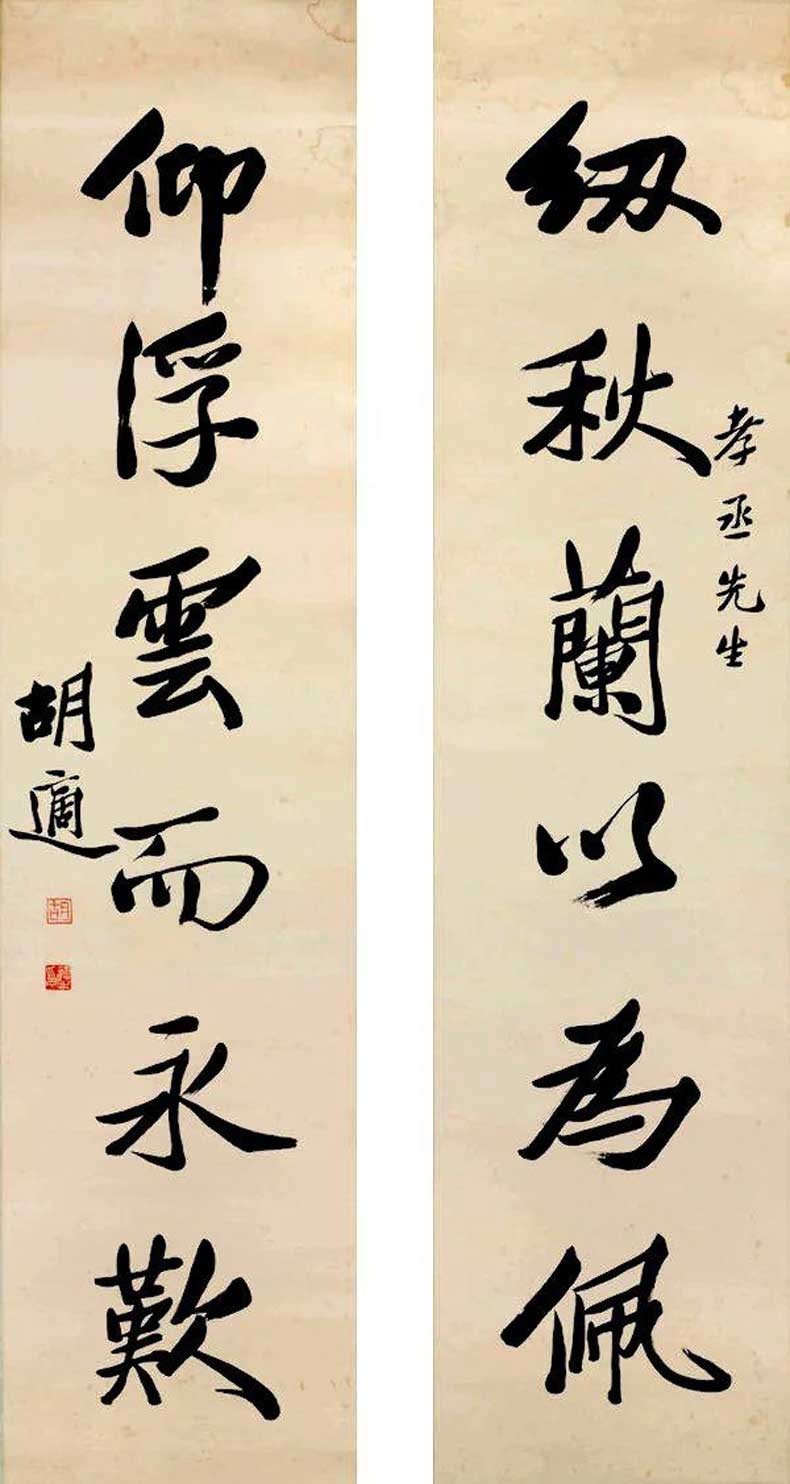 紉秋蘭以為佩
孝丞先生
仰浮雲而永歎
胡適